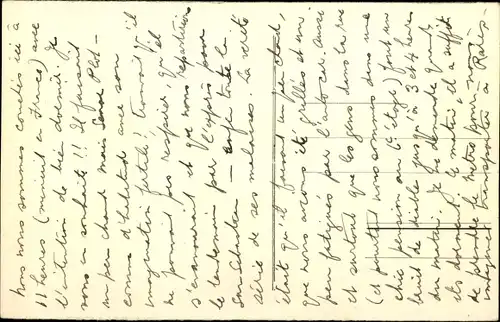 nous nous sommes couchés ici à
11 heures (minuit en France) avec
l'intention de bien dormir. Je
vous en souhaite !! Il faisait
un peu chaud mais
comme d'habitude avec son
imagination fertile! trouvait qu'il
ne pouvait pas respirer, qu'il
s'évanouirait et que nous repartirions
le lendemain par l'express pour
enfin toute la
série de ses malaises. La vérité
était qu'il faisait un peu chaud,
que nous avions été grillés et un
peu fatigués par l'autocar aussi
et surtout que les gens dans la rue
(et pourtant nous sommes dans une
chic pension au 6e étage) font un
bruit du diable jusqu'à 3 et 4 heures
du matin. Je me demande quand
ils dorment. Le métro, il suffit
de prendre le métro pour nous
transporter à